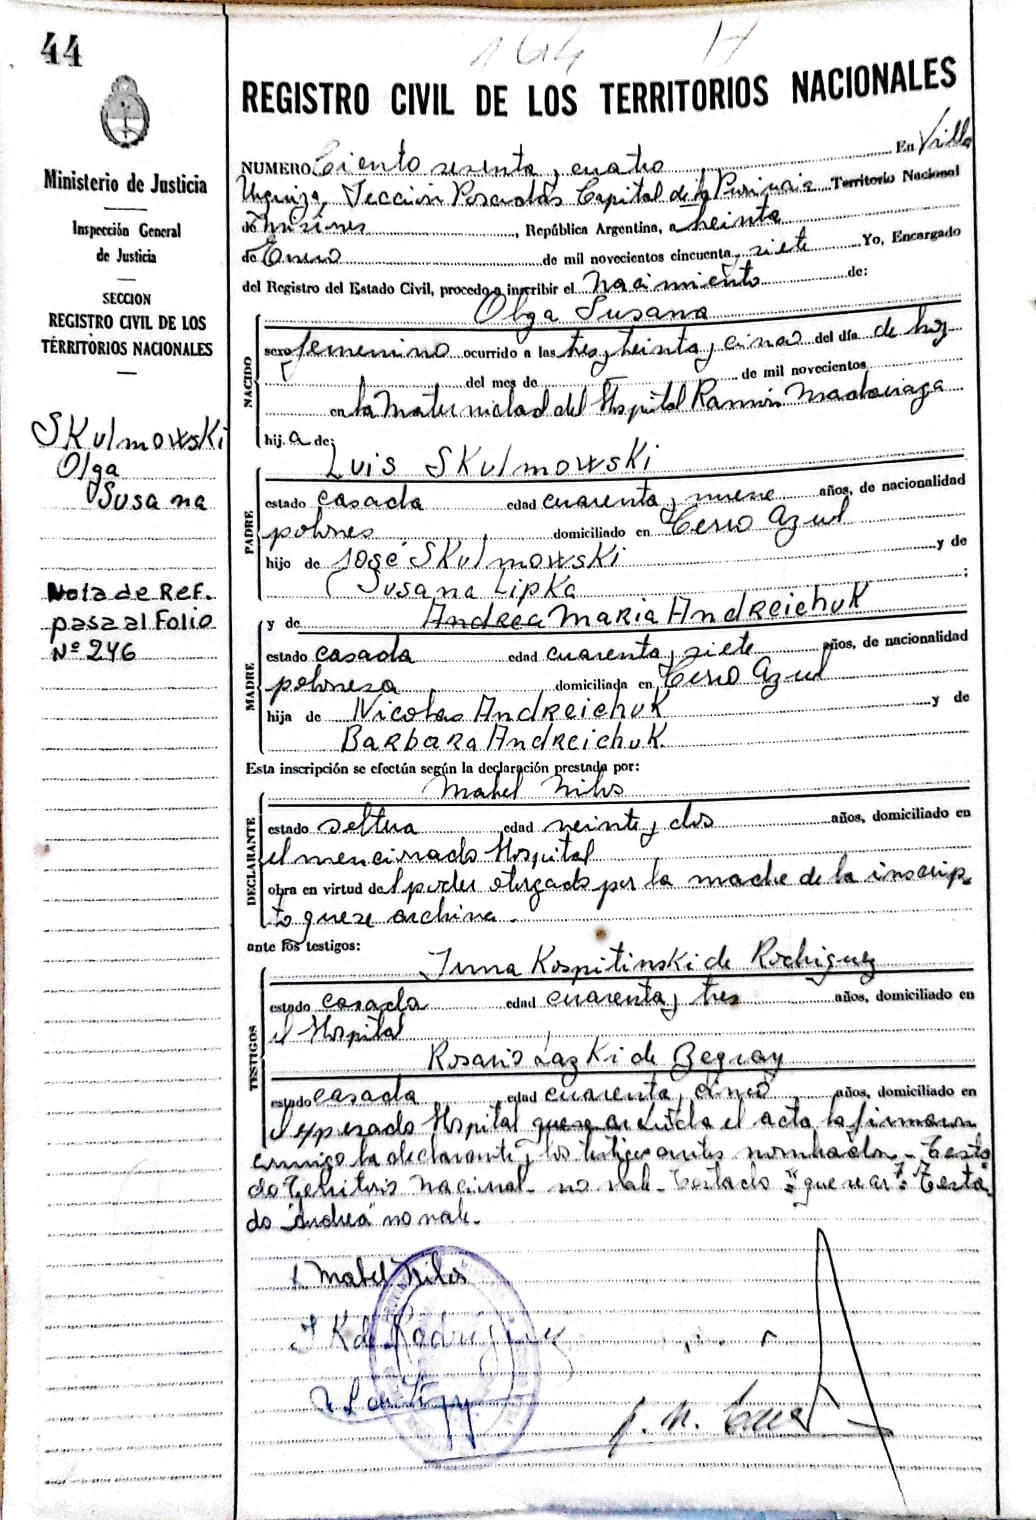 44
164 H
REGISTRO CIVIL DE LOS TERRITORIOS NACIONALES
Ministerio de Justicia
Inspección General
de Justicia
SECCION
REGISTRO CIVIL DE LOS
TERRITORIOS NACIONALES
SKulmowski
Olga
Susana
Nota de Ref.
pasa al Folio
Nº 246
NUMERO Ciento sesenta y cuatro En Villa
Urquiza, Sección Posadas Capital de la Provincia Territorio Nacional
de Misiones, República Argentina, a treinta
de Enero de mil novecientos cincuenta y siete Yo, Encargado
del Registro del Estado Civil, procedo a inscribir el nacimiento de:
NACIDO
Olga Susana
sexo femenino ocurrido a las tres y treinta y cinco del día de hoy
del mes de de mil novecientos
en la Maternidad del Hospital Ramón Madariaga
hija de:
PADRE
Luis SKulmowski
estado casado edad cuarenta y nueve años, de nacionalidad
polones domiciliado en Cerro Azul
hijo de José SKulmowski y de
Susana Lipka ;
MADRE
y de Andrea Maria Andreichuk
estado casada edad cuarenta y siete años, de nacionalidad
polonesa domiciliada en Cerro Azul
hija de Nicolas Andreichuk y de
Barbara Andreichuk.
Esta inscripción se efectúa según la declaración prestada por:
DECLARANTE
Mabel
estado soltera edad veinte y dos años, domiciliado en
el mencionado Hospital
obra en virtud del poder otorgado por la madre de la inscrip-
to que se archiva.
ante los testigos:
TESTIGOS
Irma Kospitinski de Rodriguez
estado casada edad cuarenta y tres años, domiciliado en
el Hospital
Rosario Lazki de
estado casada edad cuarenta y cinco años, domiciliado en
el expresado Hospital que se ar Leída el acta la firmaron
conmigo la declarante y los testigos antes nombrados - Testa
do Territorio Nacional - no vale - Testado "que se ar" Testa
do "Andrea" no vale.
Mabel
I K de Rodriguez